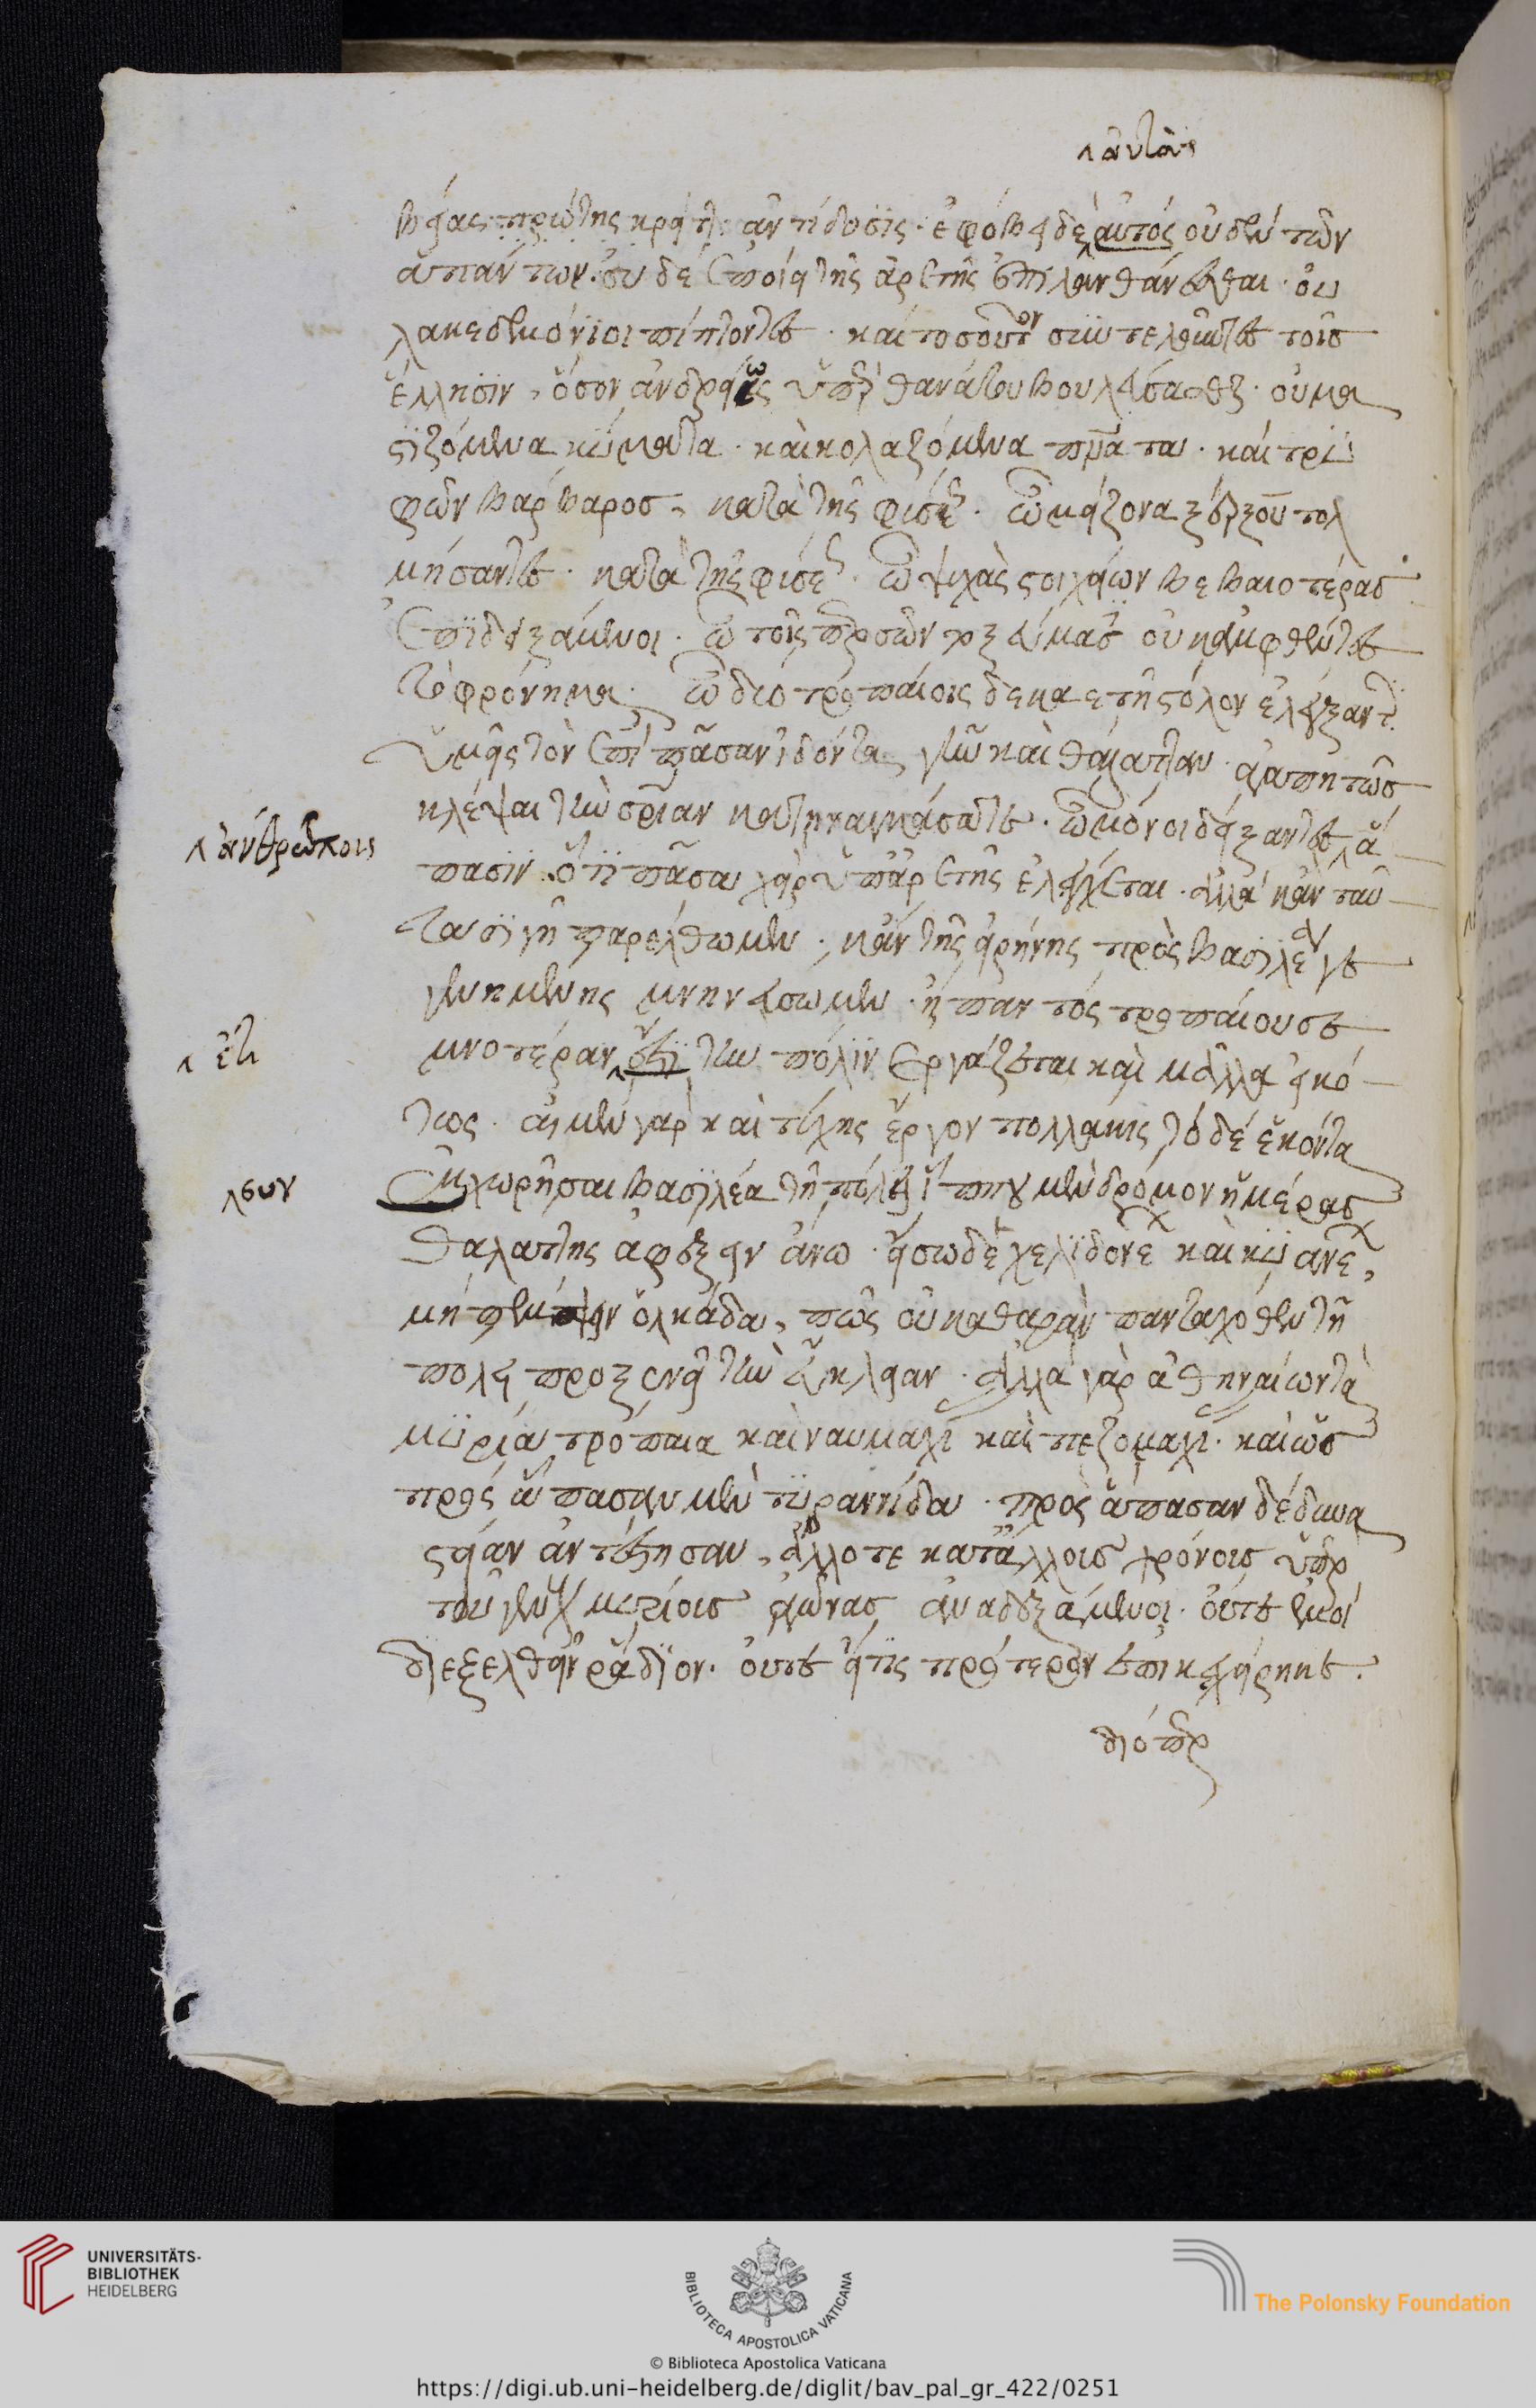 αὐτὰς
βείας πρώτης κρείττων ἀντίδοσις. ἐφόβει δὲ αὐτός οὐδὲν τῶν
ἁπάντων. οὐδὲ ποίει τῆς ἀρετῆς ἐπιλανθάνεσθαι. οἱ
λακεδαιμόνιοι πίπτοντες. καὶ τοσοῦτον συντελοῦντες τοῖς
ἕλλησιν, ὅσον ἀνδρείως ὑπὲρ θανάτου βουλεύσασθαι. οὐ μα
στιζόμενα κύματα. καὶ κολαζόμενα πράγματα. καὶ τρυ
φῶν βάρβαρος, κατὰ τῆς φύσεως. ὢ μείζονα ξέρξου τολ
μήσαντες κατὰ τῆς φύσεως. ὢ ψυχὰς στοιχείων βεβαιοτέρας
ἐπιδειξάμενοι. ὢ τοῖς πρὸς ὧν ῥεύμασ οὐ καμφθέντες
τὸ φρόνημα. ὢ δυο τροπαίοις δεκαετῆ στόλον ἐλέγξαντες
ὑμεῖς τὸν ἐπὶ πᾶσαν ἰδόντα γῆν καὶ θάλατταν. ἀγαπητῶς
κλέψαι τὴν σωτηρίαν κατηναγκάσατε. ὢ μόνοι δείξαντες ἅ
ἀνθρώποις
πασιν ὅτι πᾶσα χεὶρ ὑπ' ἀρετῆς ἐλέγχεται. ἀλλὰ κἂν ταῦ
τα σιγῇ παρέλθωμεν, κἂν τῆς εἰρήνης πρὸς βασιλέα γε
γενημένης μνησθῶμεν ἣ παντός τροπαίου σε
μνοτέραν ἔτι τὴν πόλιν ἐργάζεται καὶ μάλα εἰκό
ἔτι
τως. αἱ μὲν γὰρ καὶ τύχης ἔργον πολλάκις τὸ δὲ ἑκόντα
συγ
χωρῆσαι βασιλέα τῇ πόλει ἵππου μὲν δρόμον ἡμέρας
θαλάττης ἀφέξειν ἄνω. εἴσω δὲ χελιδονέων καὶ κυανέων,
μὴ πέμπειν ὁλκάδα, πῶς οὐ καθαρὰν πανταχόθεν τῇ
πόλει προξενεῖ τὴν εὔκλειαν. ἀλλὰ γὰρ ἀθηναίων τὰ
μυρία τρόπαια καὶ ναυμαχίαι καὶ πεζομαχίαι. καὶ ὡς
πρὸς ἅπασαν μὲν τυραννίδα. πρὸς ἅπασαν δὲ δυνα
στείαν ἀντέστησαν, ἄλλοτε κατ' ἄλλους χρόνους ὑπὲρ
τοῦ γένους μυρίοις ἀγῶνας ἀναδεξάμενοι. οὔτε ἐμοὶ
διεξελθεῖν ῥᾴδιον. οὔτε εἴ τις πρότερον ἐπικεχείρηκε.
διόπερ
UNIVERSITÄTS-
BIBLIOTHEK
HEIDELBERG
BIBLIOTECA APOSTOLICA VATICANA
The Polonsky Foundation
© Biblioteca Apostolica Vaticana
https://digi.ub.uni-heidelberg.de/diglit/bav_pal_gr_422/0251